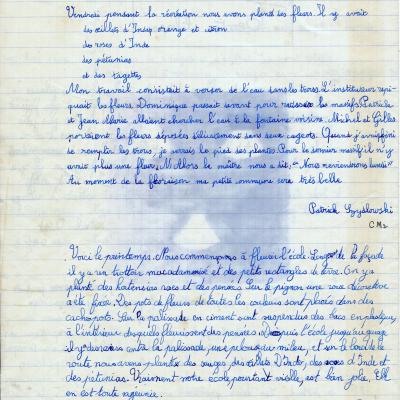 Vendredi pendant la récréation nous avons planté des fleurs. Il y avait
des œillets d'Inde orange et citron
des roses d'Inde
des pétunias
et des tagettes
Mon travail consistait à verser de l'eau dans les trous. L'instituteur repi-
quait les fleurs. Dominique passait devant pour les massifs Patrick
et Jean Marie allaient chercher l'eau à la fontaine voisine Michel et Gilles
portaient les fleurs déposées dans deux cageots. Quand j'avais fini
de remplir les trous, je versais le pied des plantes. Pour le dernier massif il n'y
avait plus une fleur, M. Alors le maître nous a dit: "Nous reviendrons lundi"
Au moment de la floraison ma petite commune sera très belle
Patrick
CM2
Voici le printemps. Nous commençons à fleurir l'école. Long de la façade
il y a un trottoir macadamisé et des petits rectangles de terre. On y a
planté des hortensias roses et des pensées. Sur le pignon une roue décorative
a été fixée. Des pots de fleurs de toutes les couleurs sont placés dans des
cachepots. Sur la palissade en ciment sont suspendus des bacs en plastique,
à l'intérieur desquels fleurissent des pensées. Depuis l'école jusqu'au garage
il y a contre la palissade, une pelouse au milieu, et sur le bord de la
route nous avons planté des sauges, des œillets d'Inde, des roses d'Inde et
des pétunias. Vraiment notre école pourtant vieille, est bien jolie. Elle
en est toute rajeunie.